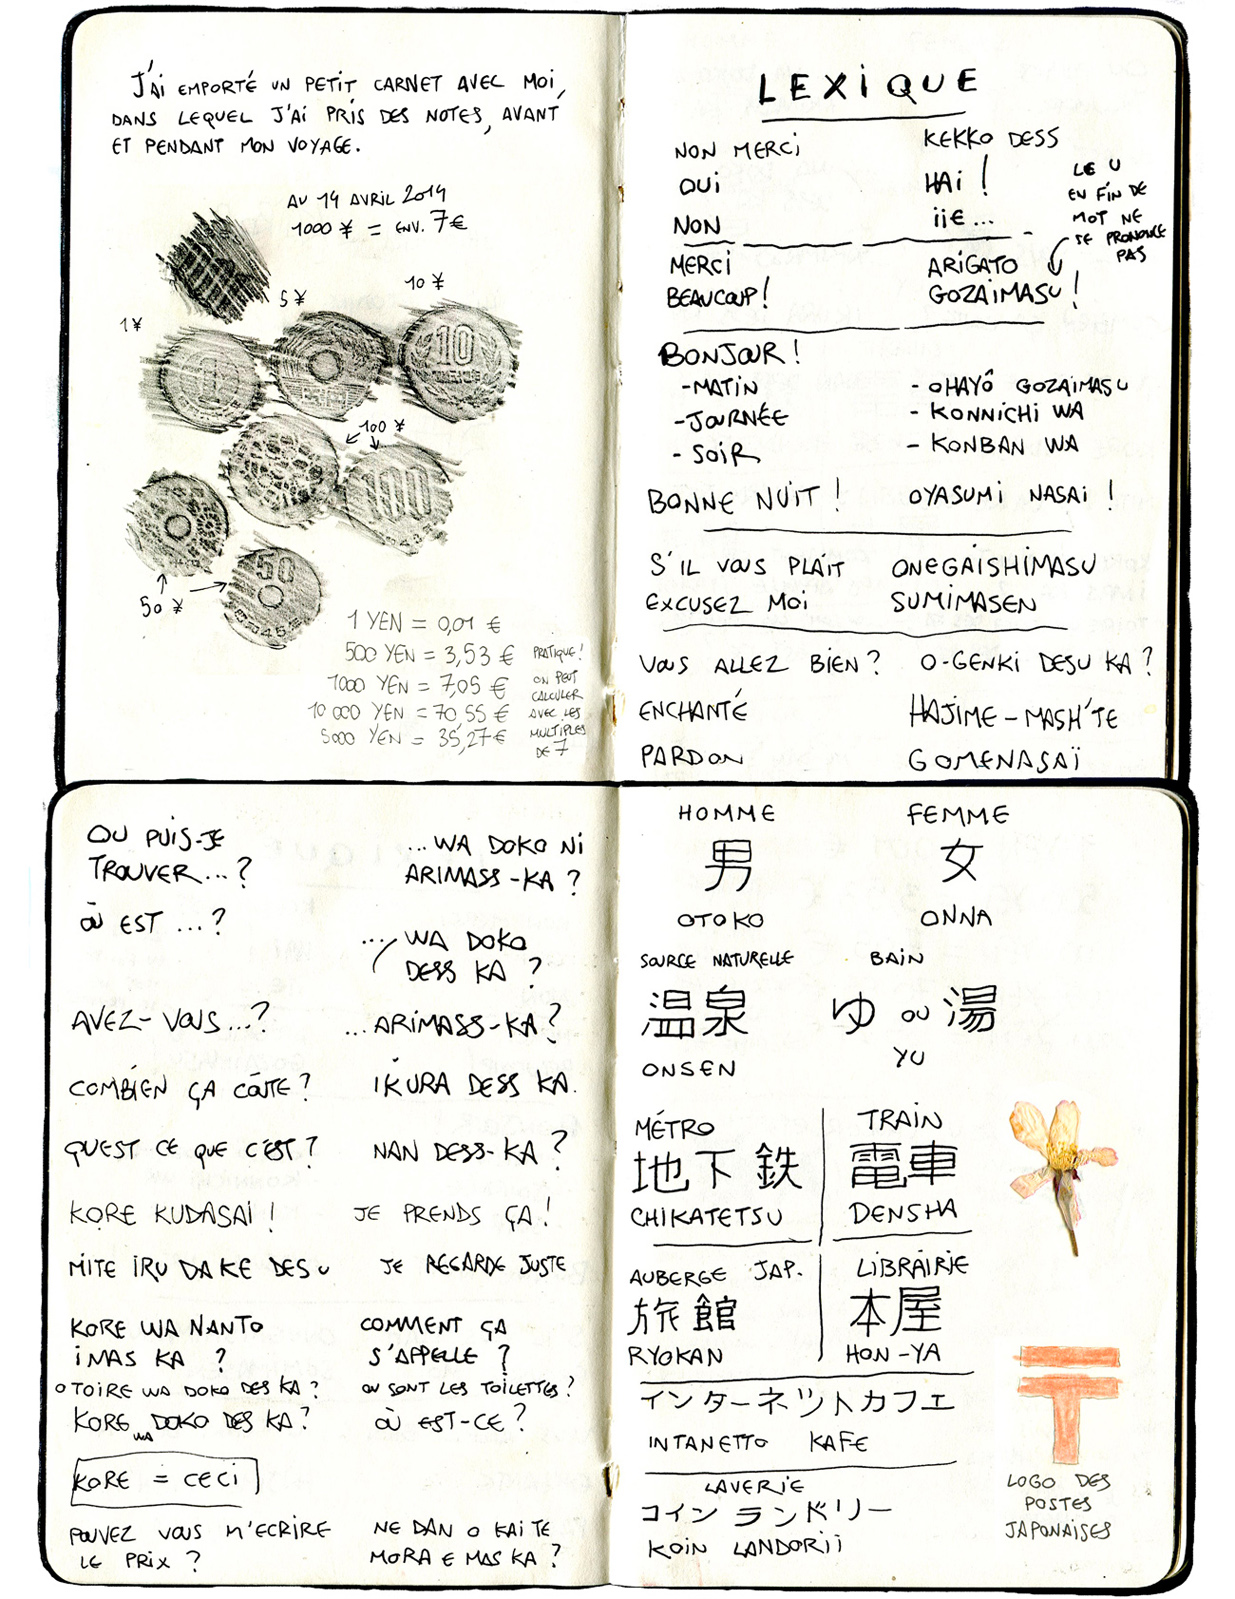 J'AI EMPORTÉ UN PETIT CARNET AVEC MOI,
DANS LEQUEL J'AI PRIS DES NOTES, AVANT
ET PENDANT MON VOYAGE.
AU 14 AVRIL 2014
1000 ¥ = ENV. 7 €
5 ¥
10 ¥
1 ¥
1
10
100 ¥
100
50 ¥
50
1 YEN = 0,01 €
500 YEN = 3,53 €
1000 YEN = 7,05 €
10 000 YEN = 70,55 €
5000 YEN = 35,27 €
PRATIQUE !
ON PEUT
CALCULER
AVEC LES
MULTIPLES
DE 7
LEXIQUE
NON MERCI KEKKO DESS
OUI HAI !
NON IIE...
LE U
EN FIN DE
MOT NE
SE PRONONCE
PAS
MERCI ARIGATO
BEAUCOUP ! GOZAIMASU !
BONJOUR !
-MATIN - OHAYÔ GOZAIMASU
-JOURNÉE - KONNICHI WA
- SOIR - KONBAN WA
BONNE NUIT ! OYASUMI NASAI !
S'IL VOUS PLAÎT ONEGAISHIMASU
EXCUSEZ MOI SUMIMASEN
VOUS ALLEZ BIEN ? O-GENKI DESU KA ?
ENCHANTÉ HAJIME-MASH'TE
PARDON GOMENASAÏ
OU PUIS-JE ...WA DOKO NI
TROUVER...? ARIMASS-KA ?
OÙ EST ...? ... WA DOKO
DESS KA ?
AVEZ-VOUS...? ...ARIMASS-KA ?
COMBIEN ÇA COÛTE ? IKURA DESS KA.
QU'EST CE QUE C'EST ? NAN DESS-KA ?
KORE KUDASAI ! JE PRENDS ÇA !
MITE IRU DAKE DESU JE REGARDE JUSTE
KORE WA NANTO COMMENT ÇA
IMAS KA ? S'APPELLE ?
OTOIRE WA DOKO DES KA ? OU SONT LES TOILETTES ?
KORE WA DOKO DES KA ? OÙ EST-CE ?
KORE = CECI
POUVEZ VOUS M'ECRIRE NE DAN O KAI TE
LE PRIX ? MORA E MAS KA ?
HOMME FEMME
男 女
OTOKO ONNA
SOURCE NATURELLE BAIN
温泉 ゆ OU 湯
ONSEN YU
MÉTRO TRAIN
地下鉄 電車
CHIKATETSU DENSHA
AUBERGE JAP. LIBRAIRIE
旅館 本屋
RYOKAN HON-YA
インターネットカフェ
INTANETTO KAFE
LAVERIE
コインランドリー
KOIN LANDORII
〒
LOGO DES
POSTES
JAPONAISES